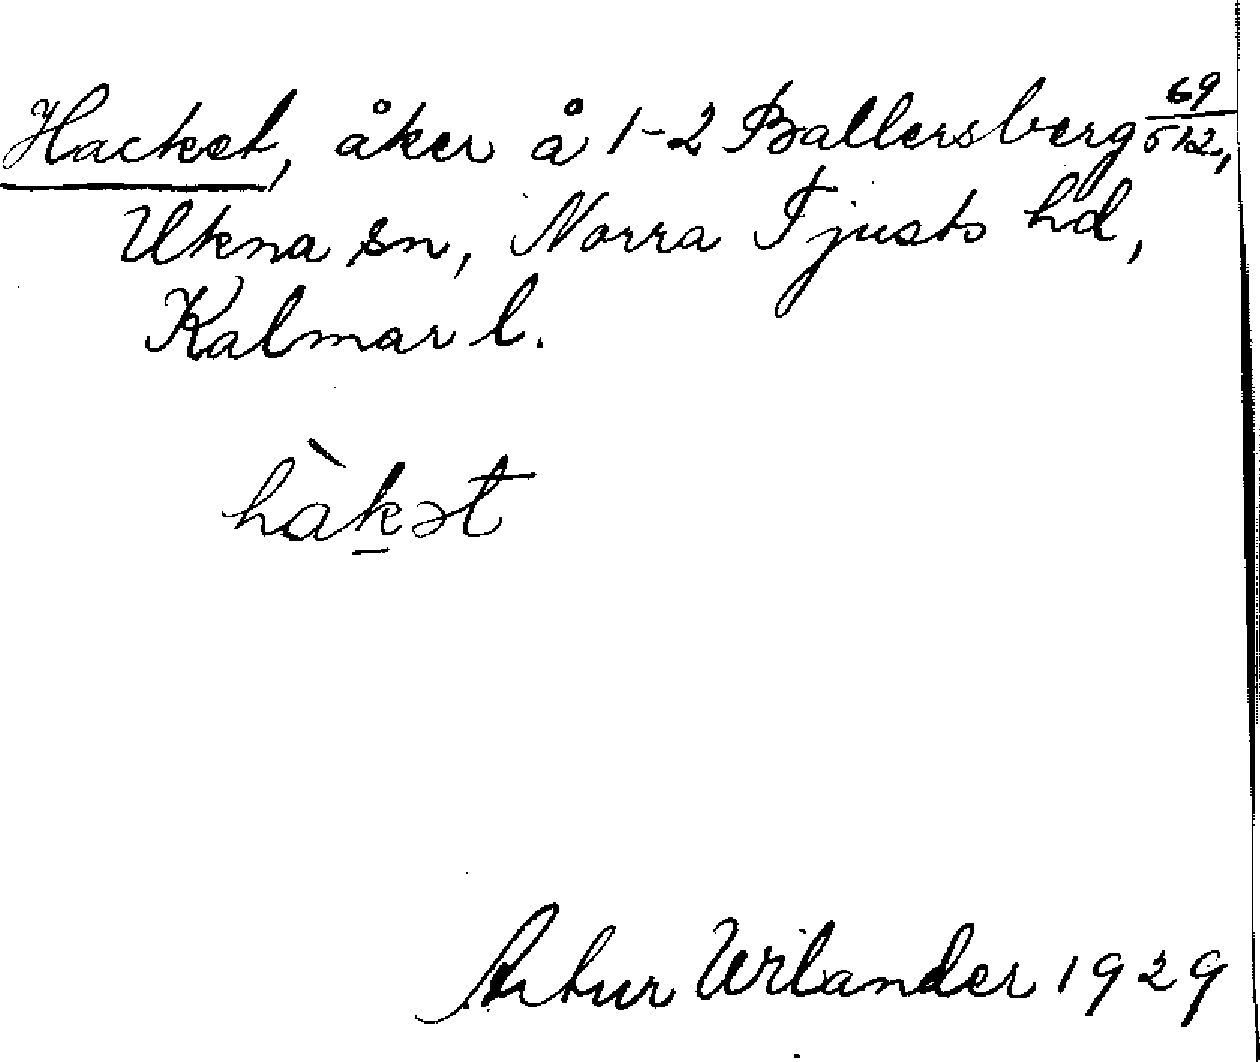 Hacket, åker å 1-2 Ballersberg 69/512,
Ukna sn, Norra Tjusts hd,
Kalmar l.
hàk̲ət
Artur Wilander 1929